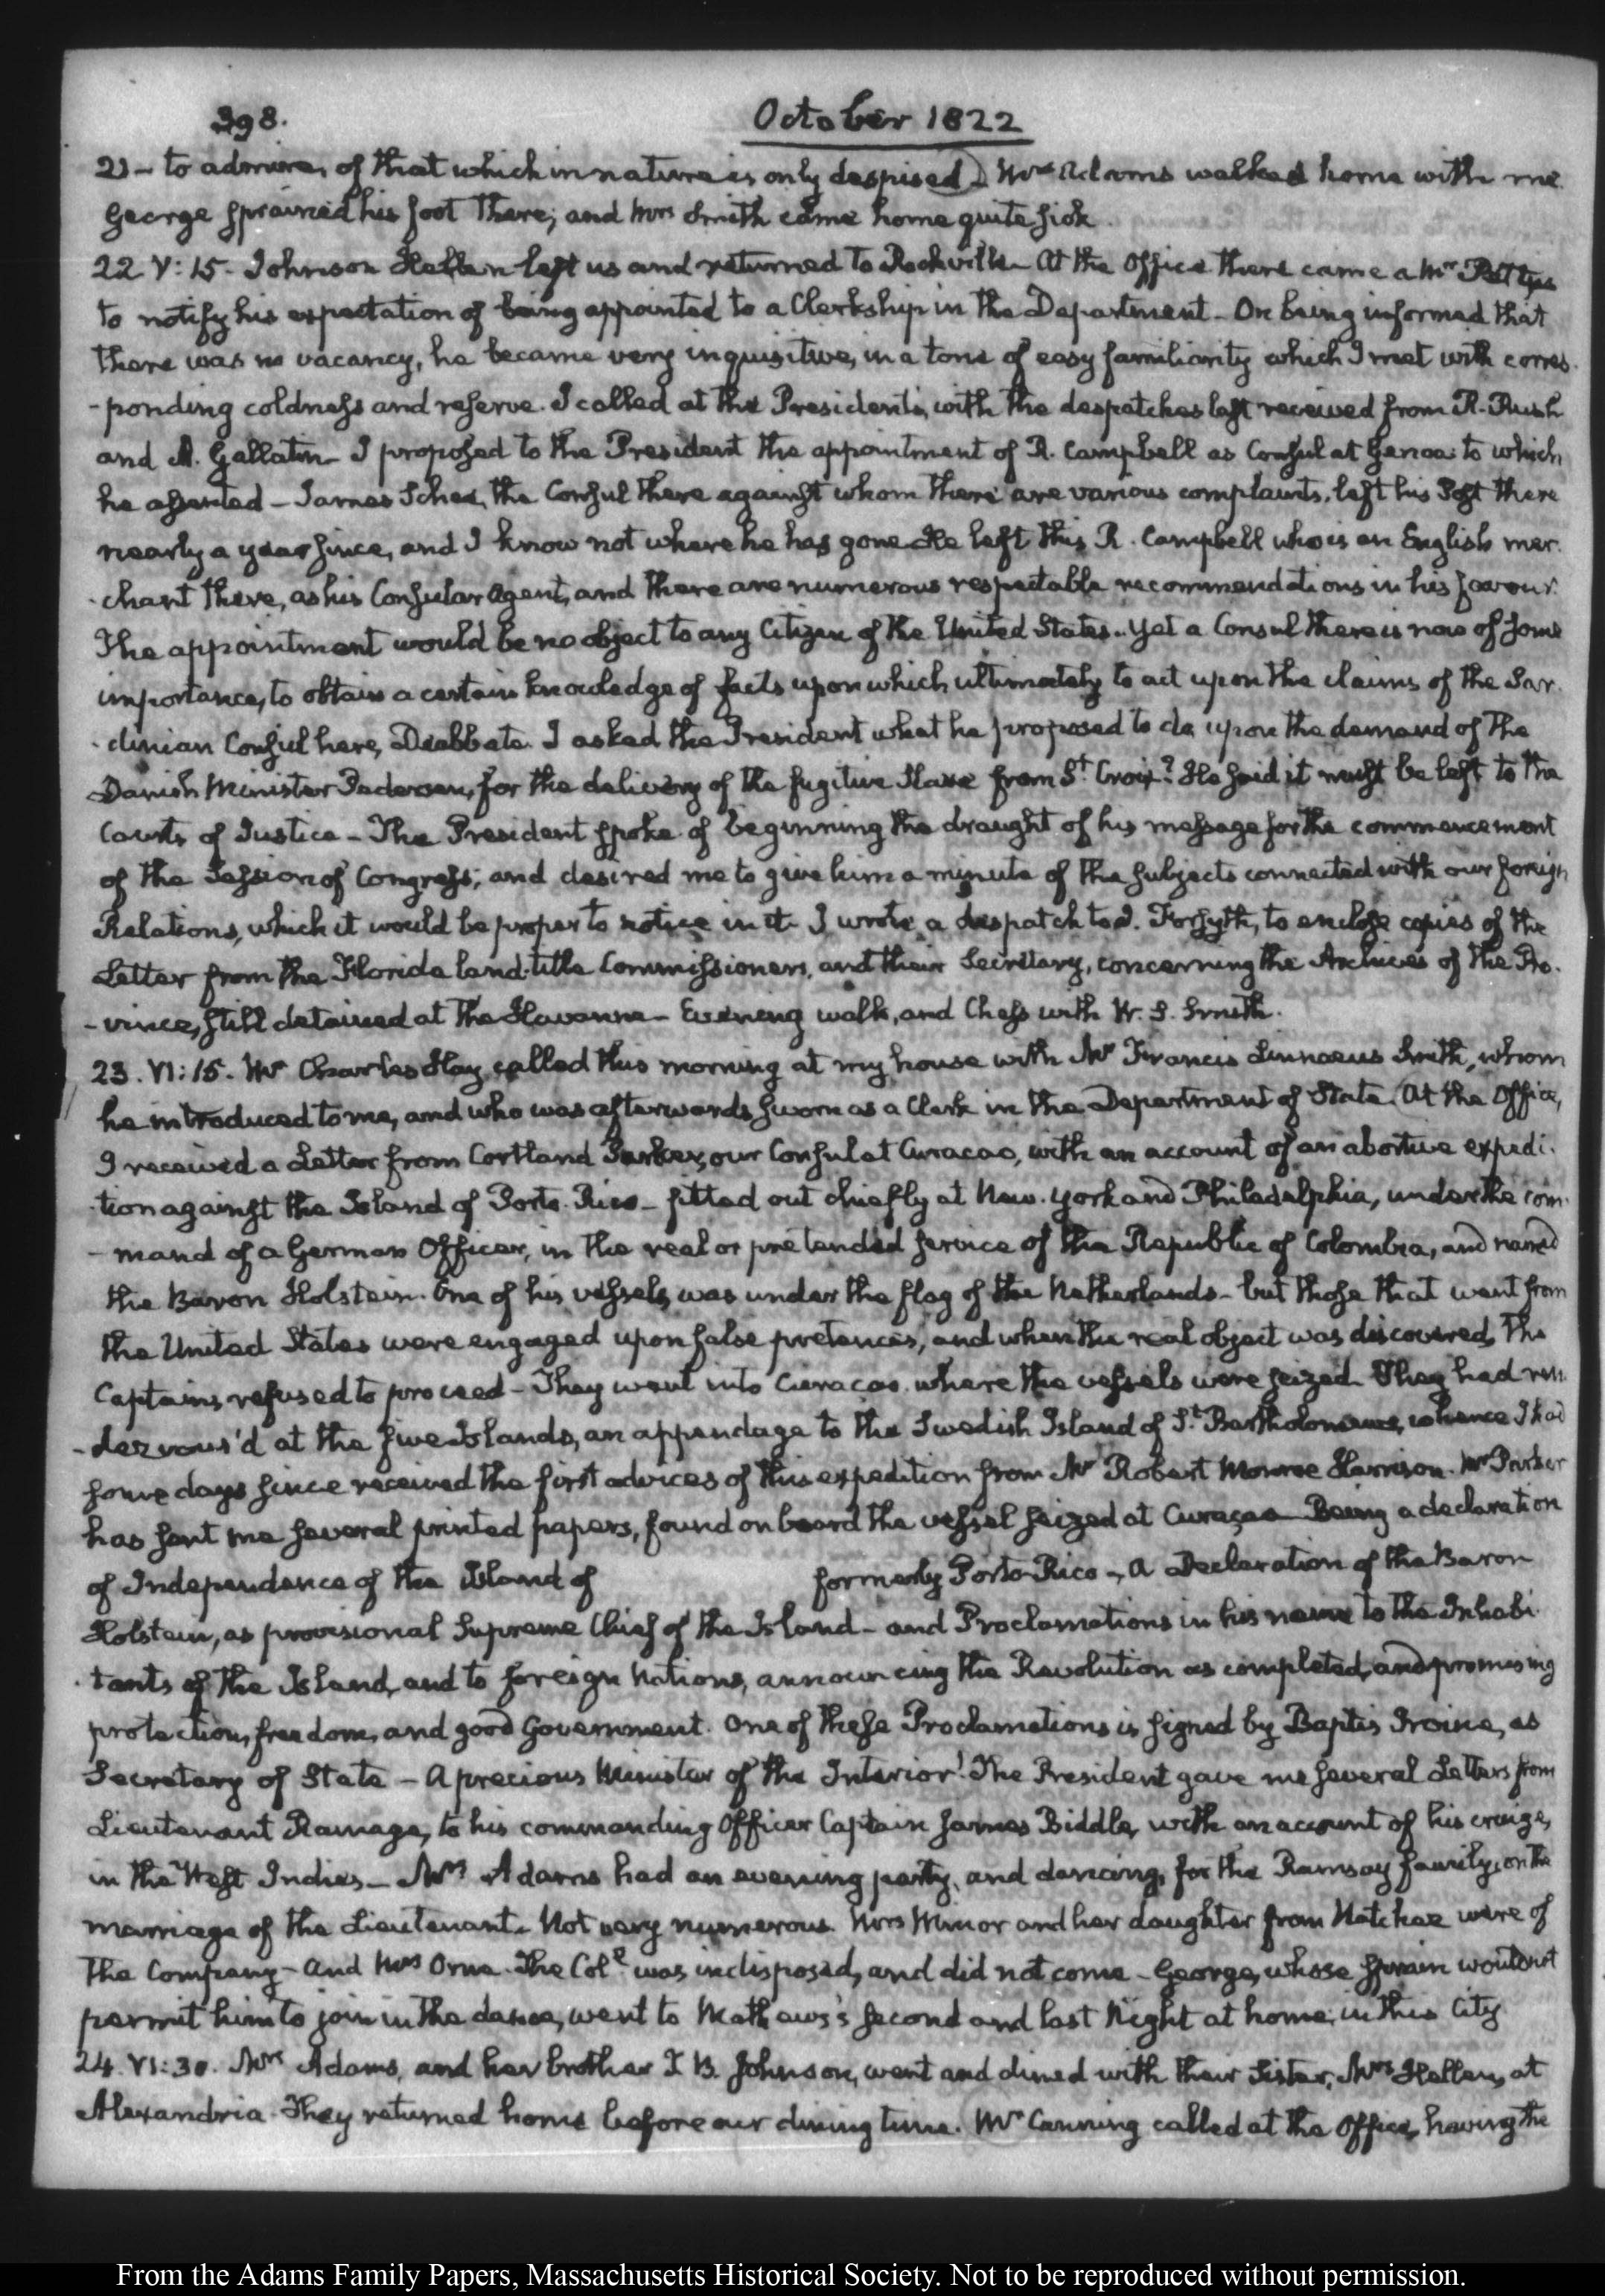 398.
October 1822
21 - to admire, of that which in nature is only despised.) Mrs Adams walked home with me.
George sprained his foot there; and Mrs Smith came home quite sick.
22 V:15. Johnson Hellen left us and returned to Rockville. At the Office there came a Mr
to notify his expectation of being appointed to a Clerkship in the Department - On being informed that
there was no vacancy, he became very inquisitive, in a tone of easy familiarity which I met with corres-
-ponding coldness and reserve. I called at the President's, with the despatches last received from R. Rush
and A. Gallatin - I proposed to the President the appointment of R. Campbell as Consul at Genoa: to which
he assented - James the Consul there against whom there are various complaints, left his Post there
nearly a year since, and I know not where he has gone. He left this R. Campbell who is an English mer-
-chant there, as his Consular Agent, and there are numerous respectable recommendations in his favour.
The appointment would be no object to any Citizen of the United States.. Yet a Consul there is now of some
importance, to obtain a certain knowledge of facts upon which ultimately to act upon the claims of the Sar-
-dinian Consul here, Deabbate. I asked the President what he proposed to do upon the demand of the
Danish Minister Pedersen, for the delivery of the fugitive Slave from St Croix? He said it must be left to the
Courts of Justice - The President spoke of beginning the draught of his message for the commencement
of the Session of Congress; and desired me to give him a minute of the subjects connected with our foreign
Relations, which it would be proper to notice in it. I wrote a despatch to J. Forsyth, to enclose copies of the
Letter from the Florida land-title Commissioners, and their Secretary, concerning the Archives of the Pro-
-vince, still detained at the Havanna - Evening walk, and Chess with W. S. Smith.
23. VI:15. Mr Charles Hay called this morning at my house with Mr Francis Linnaeus Smith, whom
he introduced to me, and who was afterwards sworn as a Clerk in the Department of State. At the Office,
I received a Letter from Cortland Parker, our Consul at Curacao, with an account of an abortive expedi-
-tion against the Island of Porto-Rico - fitted out chiefly at New-York and Philadelphia, under the com-
-mand of a German Officer, in the real or pretended service of the Republic of Colombia, and named
the Baron Holstein. One of his vessels was under the flag of the Netherlands - but those that went from
the United States were engaged upon false pretences, and when the real object was discovered, the
Captains refused to proceed - They went into Curacao where the vessels were seized. They had ren-
-dezvous'd at the five Islands, an appendage to the Swedish Island of St Bartholomew, whence I had
some days since received the first advices of this expedition from Mr Robert Monroe Harrison. Mr Parker
has sent me several printed papers, found on board the vessel seized at Curaçao - Being a declaration
of Independence of the Island of formerly Porto-Rico - A Declaration of the Baron
Holstein, as provisional Supreme Chief of the Island - and Proclamations in his name to the Inhabi-
-tants of the Island, and to foreign Nations, announcing the Revolution as completed, and promising
protection, freedom, and good Government. One of these Proclamations is signed by Baptis Irvine, as
Secretary of State - A precious Minister of the Interior! The President gave me several Letters from
Lieutenant Ramage, to his commanding Officer Captain James Biddle, with an account of his cruize,
in the West Indies - Mrs Adams had an evening party, and dancing, for the Ramsay family, on the
marriage of the Lieutenant. Not very numerous. Mrs Minor and her daughter from Natchez were of
the Company - And Mrs Orne. The Coll was indisposed, and did not come - George, whose sprain would not
permit him to join in the dance, went to Mathews's second and last Night at home, in this City
24. VI:30. Mrs Adams, and her brother T. B. Johnson, went and dined with their Sister, Mrs Hellen, at
Alexandria. They returned home before our dining time. Mr Canning called at the Office, having the
From the Adams Family Papers, Massachusetts Historical Society. Not to be reproduced without permission.